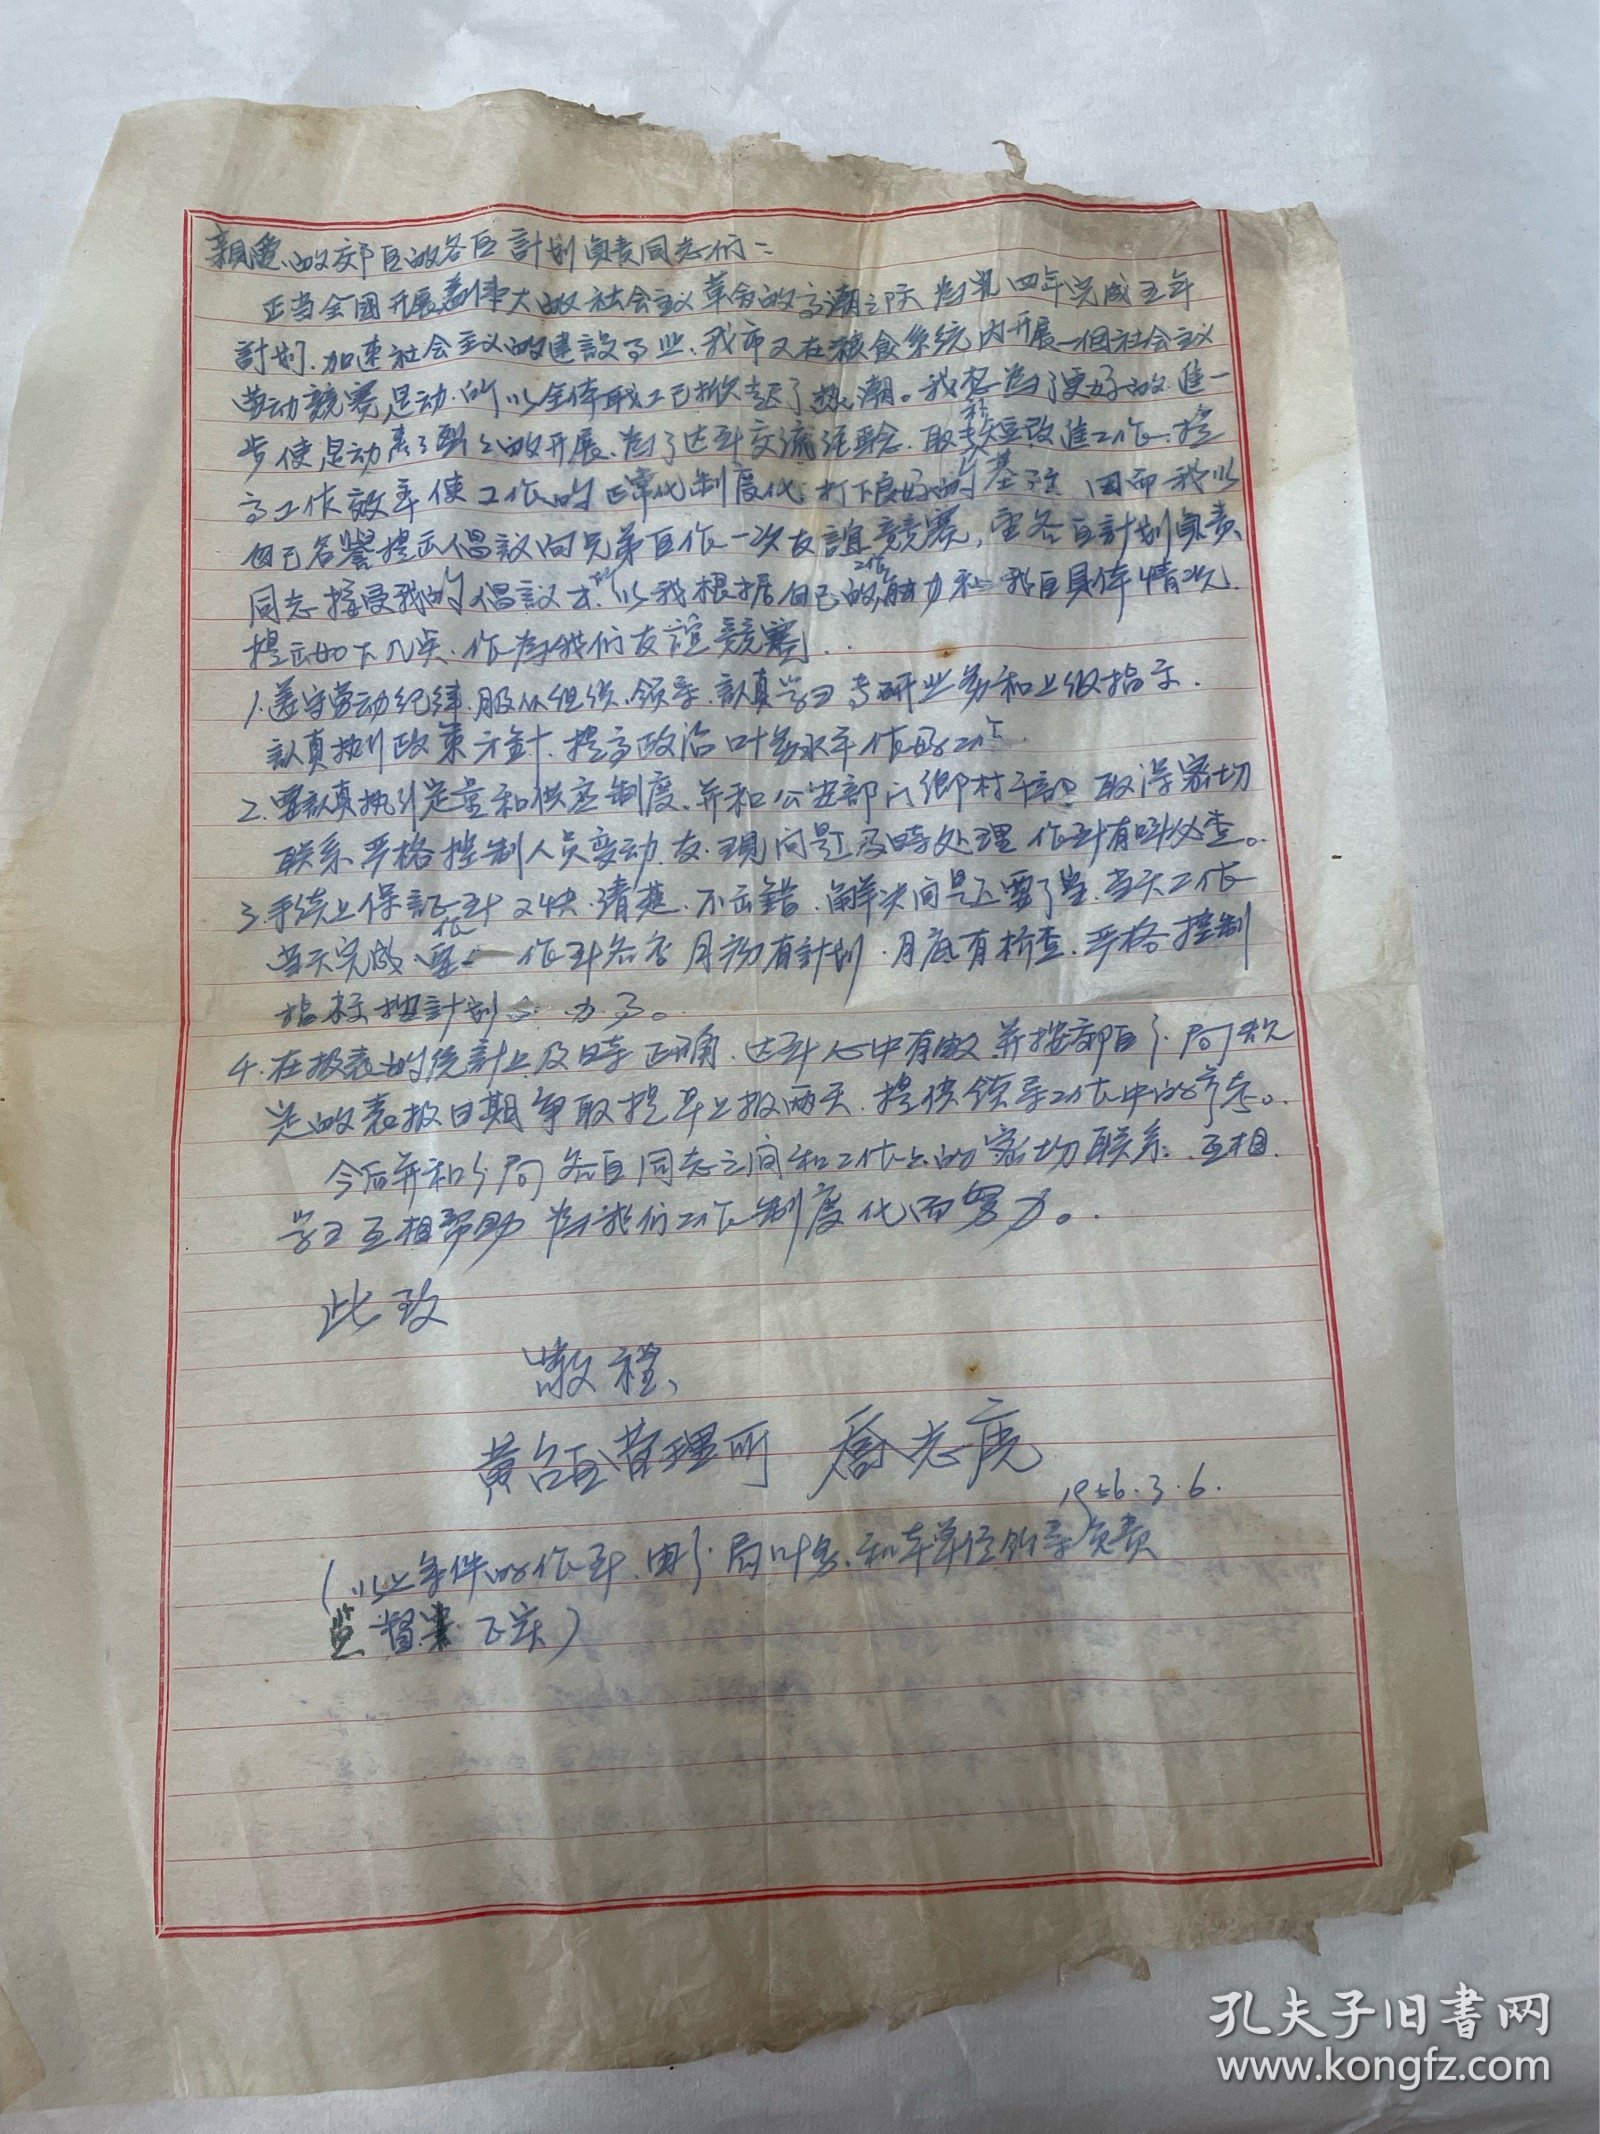 親愛的郊区的各区計划負責同志们：
正当全國开展着偉大的社会主义革命的高潮之际 为 四年完成五年
計划.加速社会主义的建設事业、我市又在粮食系統内开展一個社会主义
劳动競賽运动.所以全体职工已掀起了热潮。我 为了更好的進一
步使运动 的开展、为了达到交流经驗、取長補短改進工作、提
高工作效率使工作的正常化制度化、打下良好的基础 因而我以
自己名譽提出倡議向兄弟区作一次友誼競賽，望各区計划負責
同志接受我的倡議 所以我根据自己的工作能力和我区具体情况.
提出如下几点.作为我们友誼競賽..
1.遵守劳动纪律.服从组织.领导.認真学习专研业务和上级指示.
認真执行政策方針.提高政治业务水平作好工作.
2.要認真执行定量和供应制度.并和公安部门乡村干部取得密切
联系.严格控制人员变动.发现问题及時处理 作到有 必查。
3.手续上保証作到又快.清楚.不出錯.解决问题还要 .当天工作
当天完成 作到 月初有計划.月底有检查.严格控制
指标按計划 办事。
4.在报表的统計上及時正确.达到心中有数 并按郊区分局規
定的表报日期争取提早上报两天.提供领导工作中的参考。
今后并和分局各区同志之间和工作上的密切联系.互相
学习互相帮助 为我们工作制度化而努力。
此致
敬礼
黄台区管理所 喬志虎
1956.3.6.
(以上条件的作到.由分局业务.和本单位领导負責
監督 )
孔夫子旧書网
www.kongfz.com